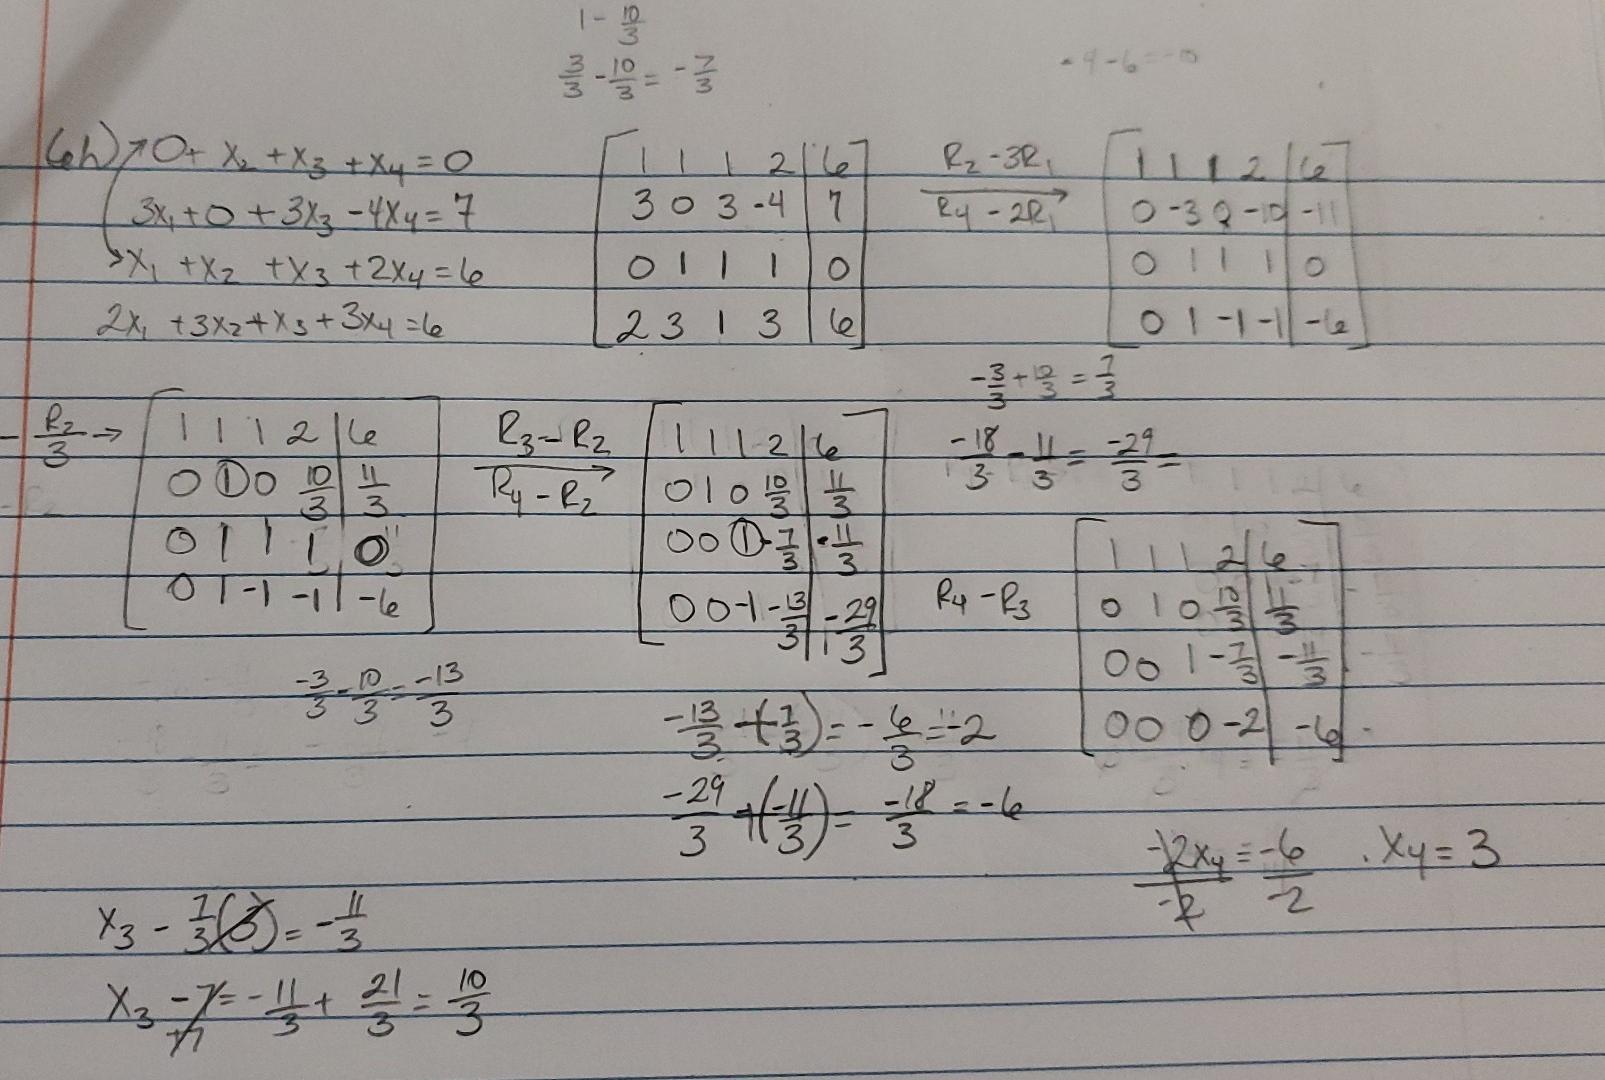 1 - 10/3
3/3 - 10/3 = -7/3
-9-6=-15
6h) 0+ x₂ + x₃ + x₄ = 0
3x₁ + 0 + 3x₃ - 4x₄ = 7
x₁ + x₂ + x₃ + 2x₄ = 6
2x₁ + 3x₂ + x₃ + 3x₄ = 6
1 1 1 2 | 6
3 0 3 -4 | 7
0 1 1 1 | 0
2 3 1 3 | 6
R₂ - 3R₁
R₄ - 2R₁
1 1 1 2 | 6
0 -3 0 -10 | -11
0 1 1 1 | 0
0 1 -1 -1 | -6
- R₂/3 →
1 1 1 2 | 6
0 1 0 10/3 | 11/3
0 1 1 1 | 0
0 1 -1 -1 | -6
R₃ - R₂
R₄ - R₂
1 1 1 2 | 6
0 1 0 10/3 | 11/3
0 0 1 -7/3 | -11/3
0 0 -1 -13/3 | -29/3
-3/3 + 10/3 = 7/3
-18/3 - 11/3 = -29/3 =
R₄ - R₃
1 1 1 2 | 6
0 1 0 10/3 | 11/3
0 0 1 -7/3 | -11/3
0 0 0 -2 | -6
-3/3 - 10/3 = -13/3
-13/3 + (7/3) = -6/3 = -2
-29/3 + (-11/3) = -18/3 = -6
-2x₄/-2 = -6/-2 . x₄ = 3
x₃ - 7/3(3) = -11/3
x₃ - 7 = -11/3 + 21/3 = 10/3
+7